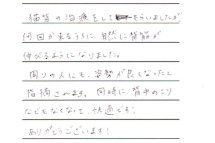 猫背の治療をしてもらいましたが
何回か来るうちに、自然に背筋が
伸びるようになりました。
周りの人にも、姿勢が良くなったと
指摘されます。同時に、背中のこり
などもなくなって快適です!
ありがとうございます!